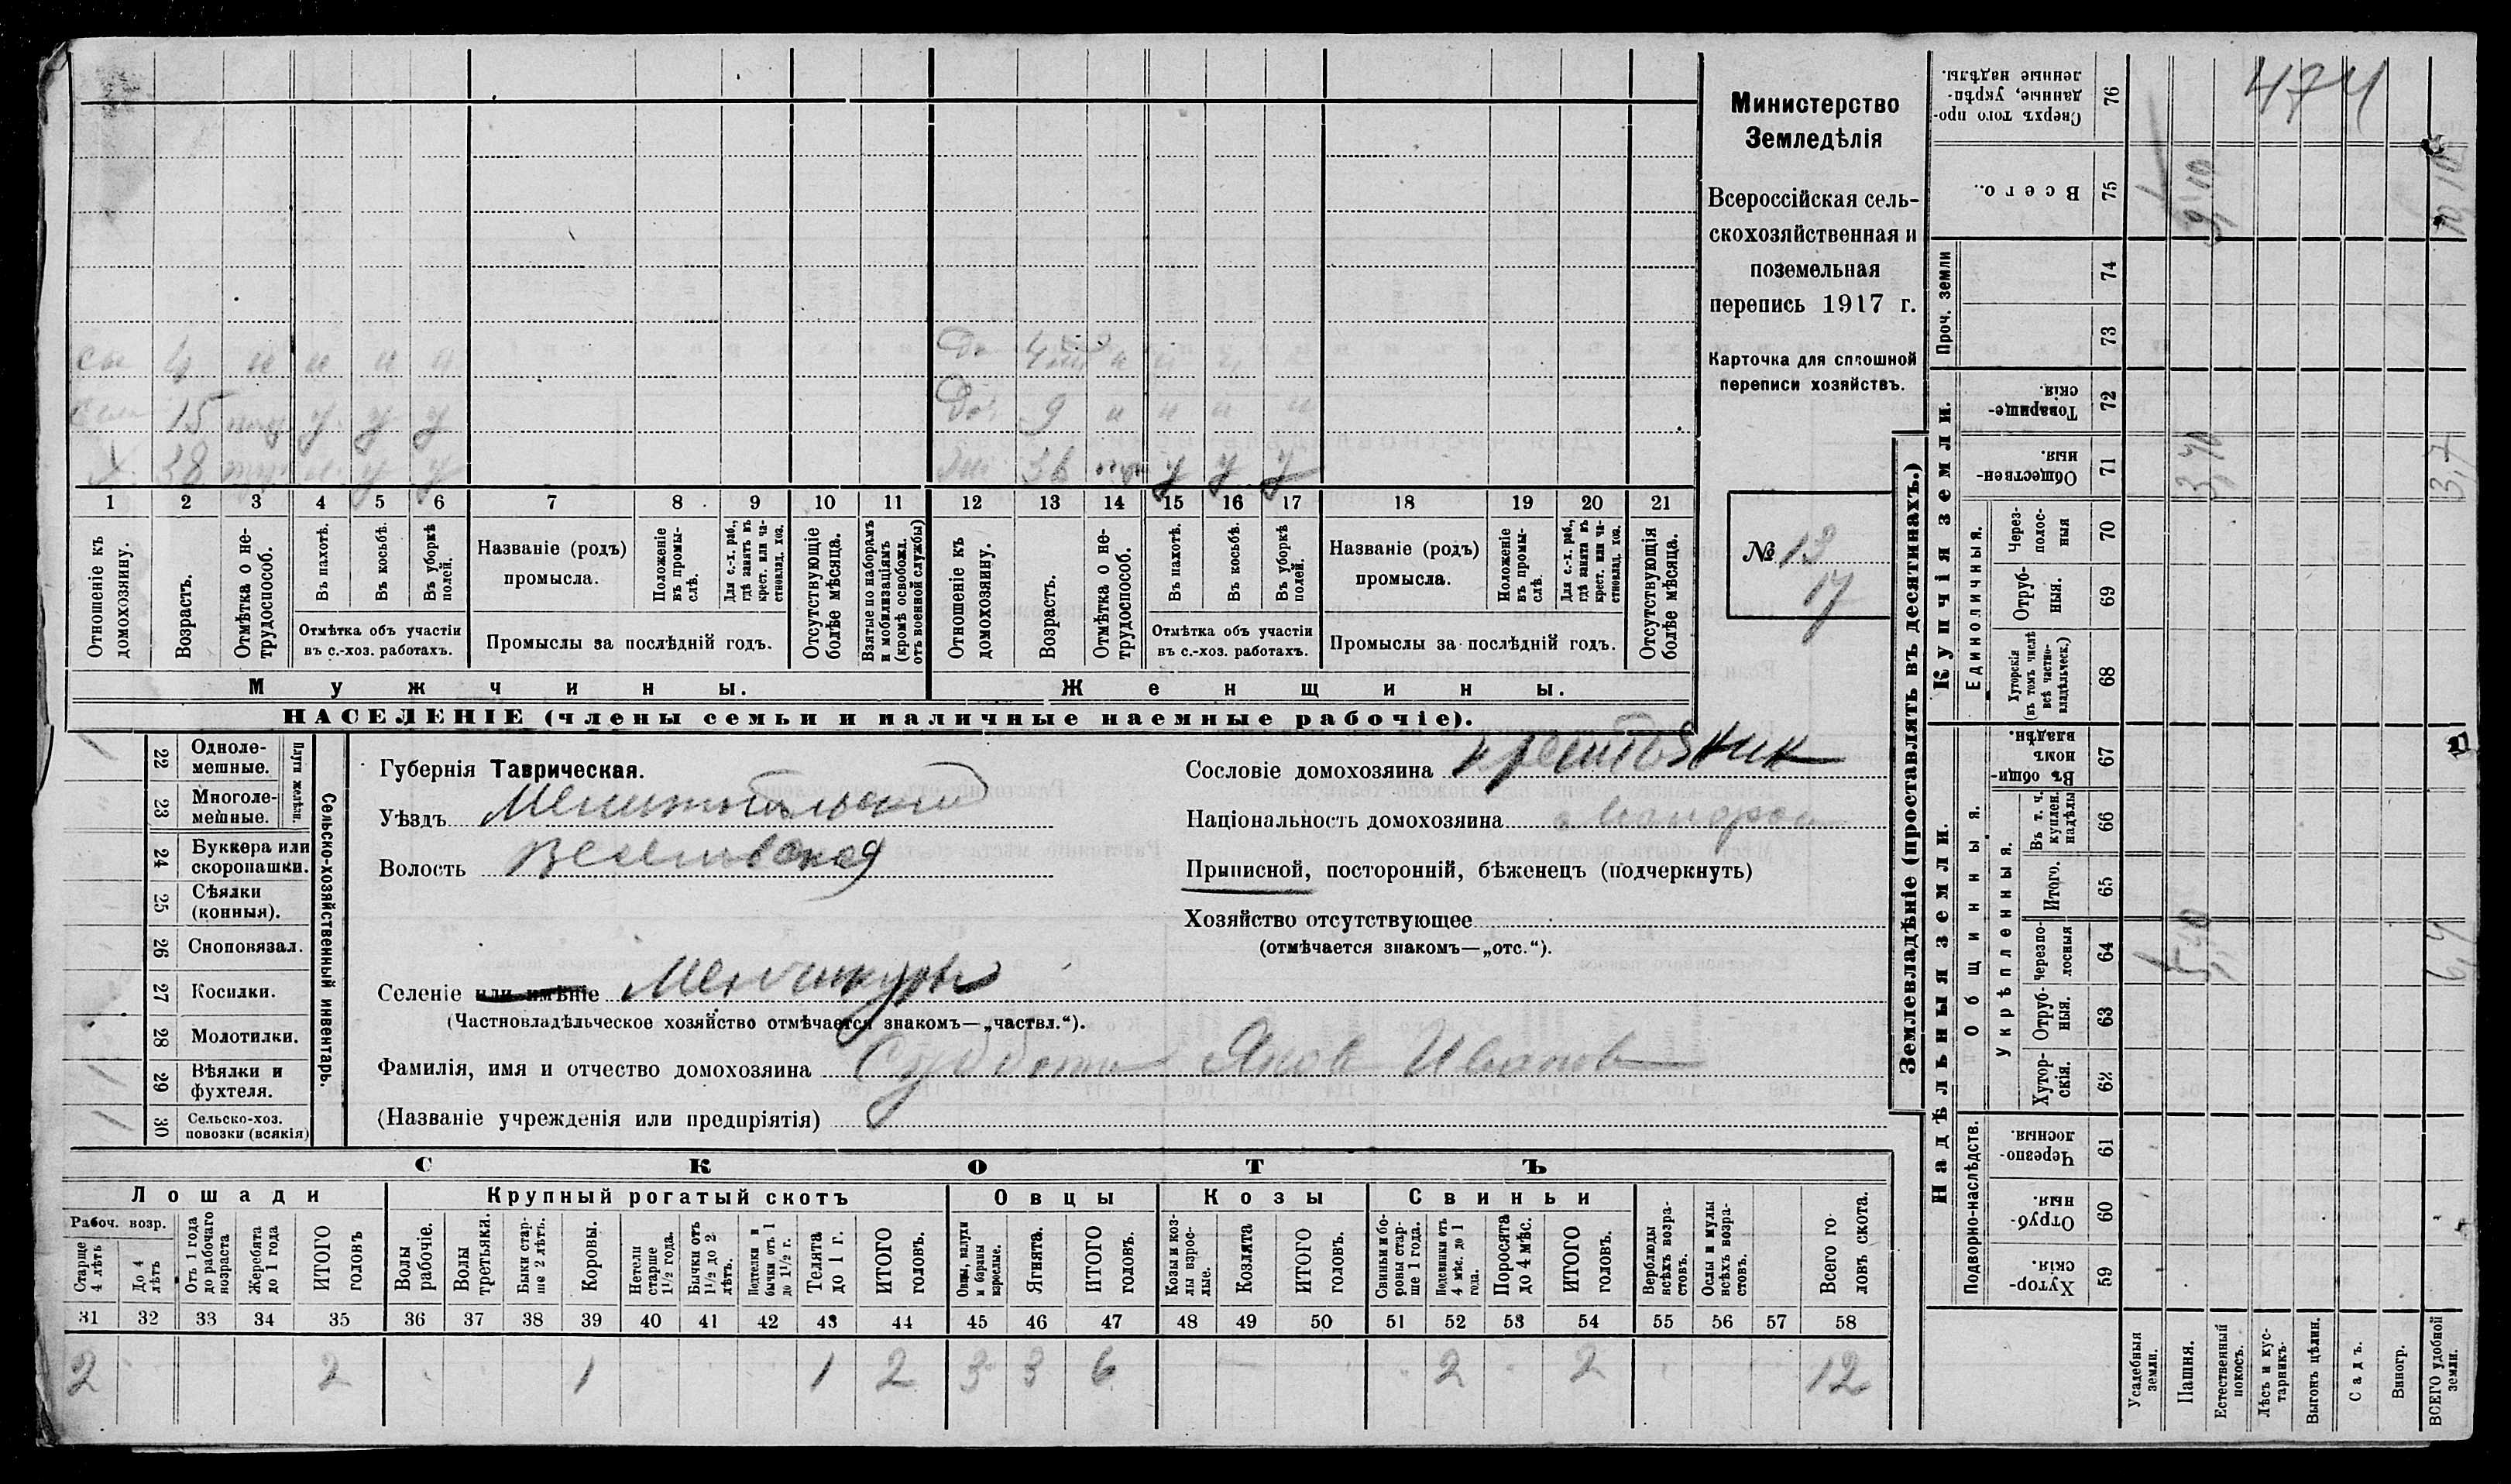 474
Министерство
Земледѣлія
Всероссійская сель-
скохозяйственная и
поземельная
перепись 1917 г.
Карточка для сплошной
переписи хозяйствъ.
№ 13
17
сы 4 н н н н
сын 15 у у у
х 38 н. у у
до 4 н н
До. 9 н н н н
36 у у у
1 2 3 4 5 6 7 8 9 10 11 12 13 14 15 16 17 18 19 20 21
Отношеніе къ домохозяину.
Возрастъ.
Отмѣтка о не-трудоспособ.
Въ пахотѣ.
Въ косьбѣ.
Въ уборкѣ полей.
Отмѣтка объ участіи
въ с.-хоз. работахъ.
Названіе (родъ)
промысла.
Положеніе въ промы-слѣ.
Для с.-х. раб., гдѣ занятъ въ крест. или ча-стновлад. хоз.
Промыслы за послѣдній годъ.
Отсутствующіе болѣе мѣсяца.
Взятые по наборамъ и мобилизаціямъ (кромѣ освобожд. отъ военной службы)
Отношеніе къ домохозяину.
Возрастъ.
Отмѣтка о не-трудоспособ.
Въ пахотѣ.
Въ косьбѣ.
Въ уборкѣ полей.
Отмѣтка объ участіи
въ с.-хоз. работахъ.
Названіе (родъ)
промысла.
Положеніе въ промы-слѣ.
Для с.-х. раб., гдѣ занята въ крест. или ча-стновлад. хоз.
Промыслы за послѣдній годъ.
Отсутствующія болѣе мѣсяца.
Мужчины. Женщины.
НАСЕЛЕНІЕ (члены семьи и наличные наемные рабочіе).
Сельско-хозяйственный инвентарь.
Плуги желѣзн.
22 Одноле-мешные. 1
23 Многоле-мешные.
24 Буккера или скоропашки.
25 Сѣялки (конныя).
26 Сноповязал.
27 Косилки.
28 Молотилки.
29 Вѣялки и фухтеля. 1
30 Сельско-хоз. повозки (всякія) 1
Губернія Таврическая.
Уѣздъ Мелитопольский
Волость Веселовская
Сословіе домохозяина крестьяник
Національность домохозяина
Приписной, посторонній, бѣженецъ (подчеркнуть)
Хозяйство отсутствующее
(отмѣчается знакомъ—„отс.“).
Селеніе или имѣніе Менчикуры
(Частновладѣльческое хозяйство отмѣчается знакомъ—„частвл.“).
Фамилія, имя и отчество домохозяина Субботы Яков Иванов
(Названіе учрежденія или предпріятія)
СКОТЪ
Лошади Крупный рогатый скотъ Овцы Козы Свиньи
Рабоч. возр.
Старше 4 лѣтъ
До 4 лѣтъ
Отъ 1 года до рабочаго возраста
Жеребята до 1 года
ИТОГО головъ
Волы рабочіе.
Волы третьяки.
Быки стар-ше 2 лѣтъ.
Коровы.
Нетели старше 1½ года.
Бычки отъ 1½ до 2 лѣтъ.
Подтелки и бычки отъ 1 до 1½ г.
Телята до 1 г.
ИТОГО головъ.
Овцы, валухи и бараны взрослые.
Ягнята.
ИТОГО головъ.
Козы и коз-лы взрос-лые.
Козлята
ИТОГО головъ.
Свиньи и бо-ровы стар-ше 1 года.
Подсвинки отъ 4 мѣс. до 1 года.
Поросята до 4 мѣс.
ИТОГО головъ.
Верблюды всѣхъ возра-стовъ.
Ослы и мулы всѣхъ возра-стовъ.
Всего го-ловъ скота.
31 32 33 34 35 36 37 38 39 40 41 42 43 44 45 46 47 48 49 50 51 52 53 54 55 56 57 58
2 2 1 1 2 3 3 6 2 2 12
Землевладѣніе (проставлять въ десятинахъ.)
Надѣльныя земли. Купчія земли. Проч. земли
Подворно-наслѣдств. Общинныя. Единоличныя.
Укрѣпленныя.
Хутор-скія. 59
Отруб-ныя. 60
Черезпо-лосныя. 61
Хутор-скія. 62
Отруб-ныя. 63
Черезпо-лосныя 64
Итого. 65
Въ т. ч. куплен. надѣлы 66
Въ общи-номъ владѣн. 67
Хуторскія (въ томъ числѣ всѣ частно-владѣльческ.) 68
Отруб-ныя. 69
Через-полос-ныя 70
Обществен-ныя. 71
Товарище-скія. 72
73
74
Всего. 75
Сверхъ того про-данные, укрѣп-ленные надѣлы. 76
Усадебныя земли. 1 1
Пашня. 5,40 3,70 9,10
Естественный покосъ.
Лѣсъ и кус-тарникъ.
Выгонъ цѣлин.
Садъ.
Виногр.
ВСЕГО удобной земли. 6,4 3,7 10,10